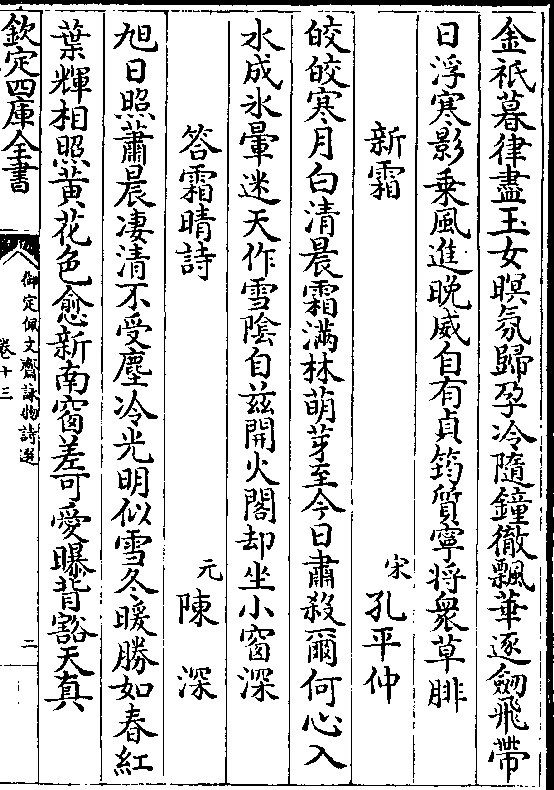 金祇暮律盡玉女暝氛歸孕冷隨鐘徹飄華逐劒飛帶
日浮寒影乗風進晩威自有貞筠質寧将衆草腓
新霜
宋
孔平仲
皎皎寒月白清晨霜滿林萌芽至今日肅殺爾何心入
水成氷暈迷天作雪陰自兹開火閣却坐小窗深
答霜晴詩
元
陳深
旭日照蕭晨凄清不受塵冷光明似雪冬暖勝如春紅
葉輝相照黄花色愈新南窗差可愛曝背豁天真
欽定四庫全書
御定佩文齋詠物詩選
卷十三
二